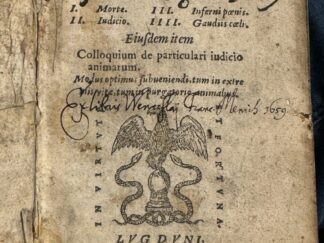 I. Morte. III. Inferni pœnis.
II. Iudicio. IIII. Gaudiis cœli.
Eiusdem item
Colloquium de particulari iudicio
animarum.
Modus optimus subueniendi, tum in extre
tum in purgatorio animabus
Ex libris 1659
IN VIRTVT
ET FORTVNA.
LVGDVNI,